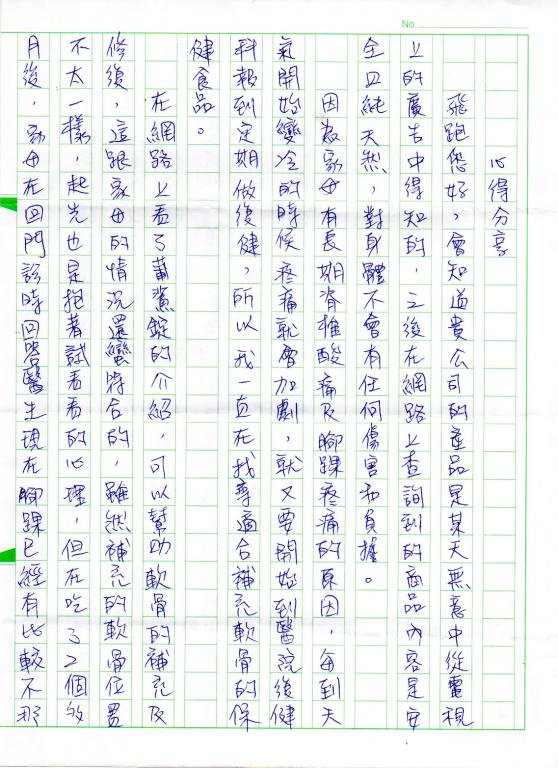 No.
心得分享
飛跑您好，會知道貴公司的產品是某天無意中從電視
上的廣告中得知的，之後在網路上查詢到的商品內容是安
全且純天然，對身體不會有任何傷害和負擔。
因為家母有長期脊椎酸痛及腳踝疼痛的原因，每到天
氣開始變冷的時候疼痛就會加劇，就又要開始到醫院後健
科報到定期做復健，所以我一直在找尋適合補充軟骨的保
健食品。
在網路上看了葡鯊錠的介紹，可以幫助軟骨的補充及
修復，這跟家母的情況還蠻符合的，雖然補充的軟骨位置
不太一樣，起先也是抱著試看看的心理，但在吃了2個多
月後，家母在回門診時回答醫生現在腳踝已經有比較不那